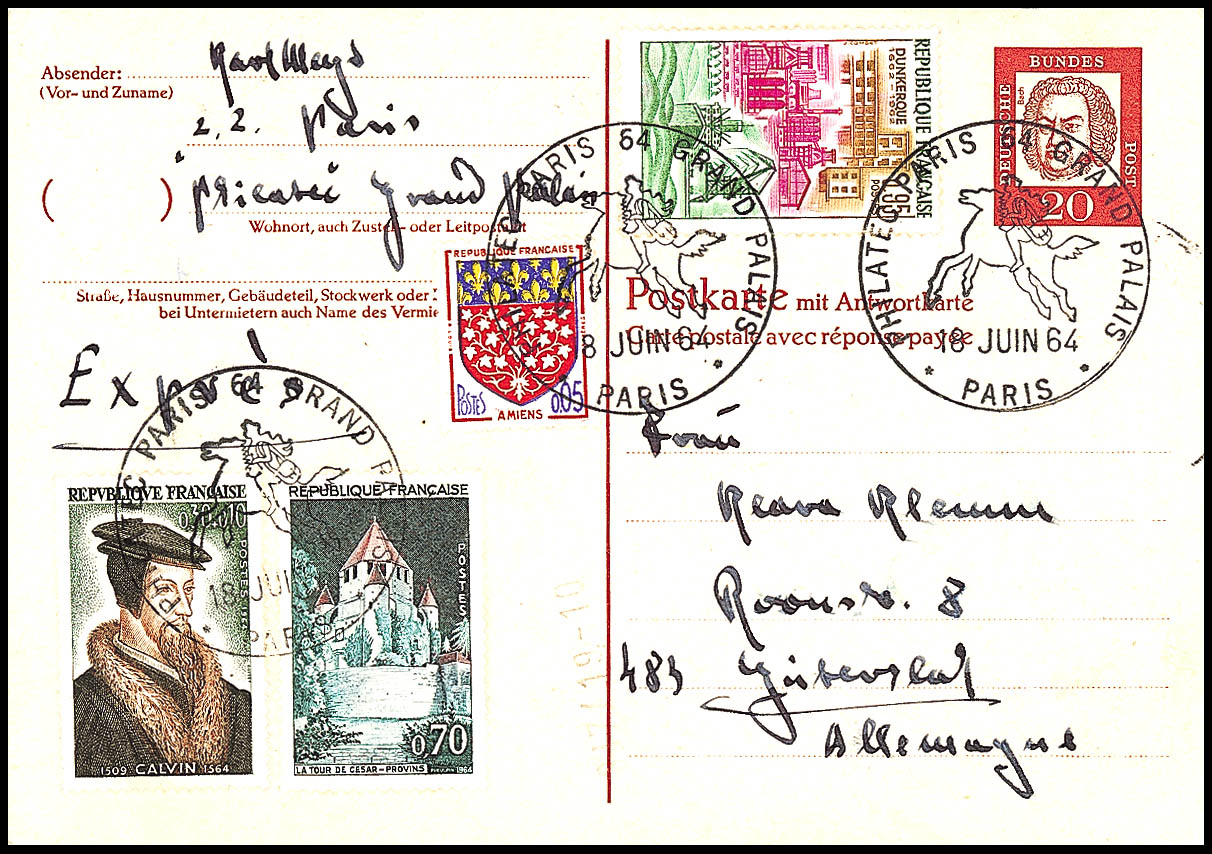 Absender:
(Vor- und Zuname)
Karl Mays
z. Z. Paris
( ) Philatec Grand Palais
Wohnort, auch Zustell- oder Leitpostamt
Straße, Hausnummer, Gebäudeteil, Stockwerk oder
bei Untermietern auch Name des Vermie
Exprès
REPUBLIQUE FRANÇAISE
DUNKERQUE
1662-1962
POSTES
0.95
DEUTSCHE BUNDES POST
Bach
20
PHILATEC PARIS 64 GRAND PALAIS
18 JUIN 64
* PARIS *
PHILATEC PARIS 64 GRAND PALAIS
18 JUIN 64
* PARIS *
REPUBLIQUE FRANÇAISE
POSTES
0.05
AMIENS
Postkarte mit Antwortkarte
Carte postale avec réponse payée
Frau
Klemm
Roonstr. 8
483 Gütersloh
Allemagne
PHILATEC PARIS 64 GRAND PALAIS
18 JUIN
* PARIS
REPVBLIQVE FRANÇAISE
0,30+0,10
POSTES 1964
1509 CALVIN 1564
REPUBLIQUE FRANÇAISE
POSTES
0,70
LA TOUR DE CESAR - PROVINS
1964
19-10